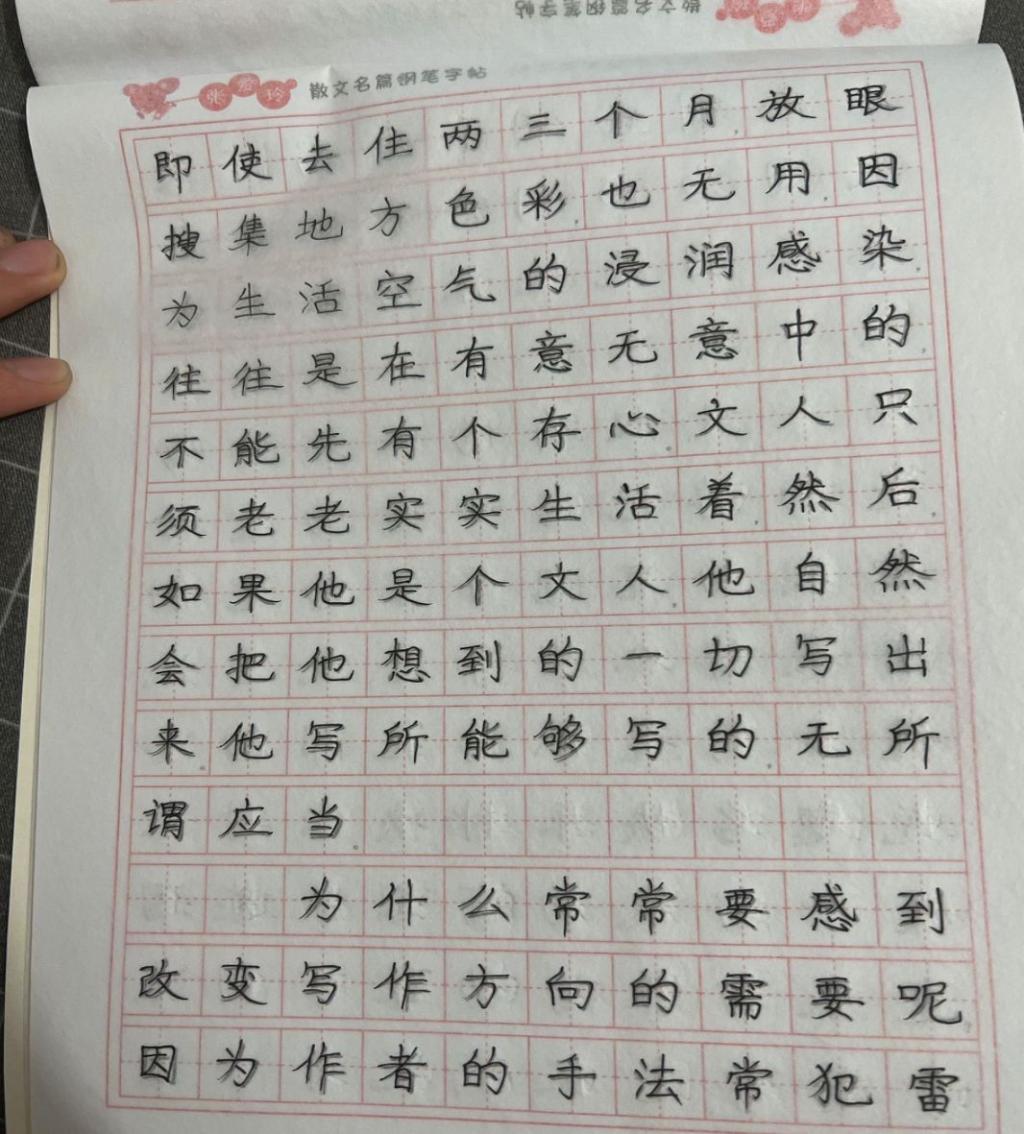 张爱玲 散文名篇钢笔字帖
即使去住两三个月放眼
搜集地方色彩也无用因
为生活空气的浸润感染
往往是在有意无意中的
不能先有个存心文人只
须老老实实生活着然后
如果他是个文人他自然
会把他想到的一切写出
来他写所能够写的无所
谓应当
为什么常常要感到
改变写作方向的需要呢
因为作者的手法常犯雷